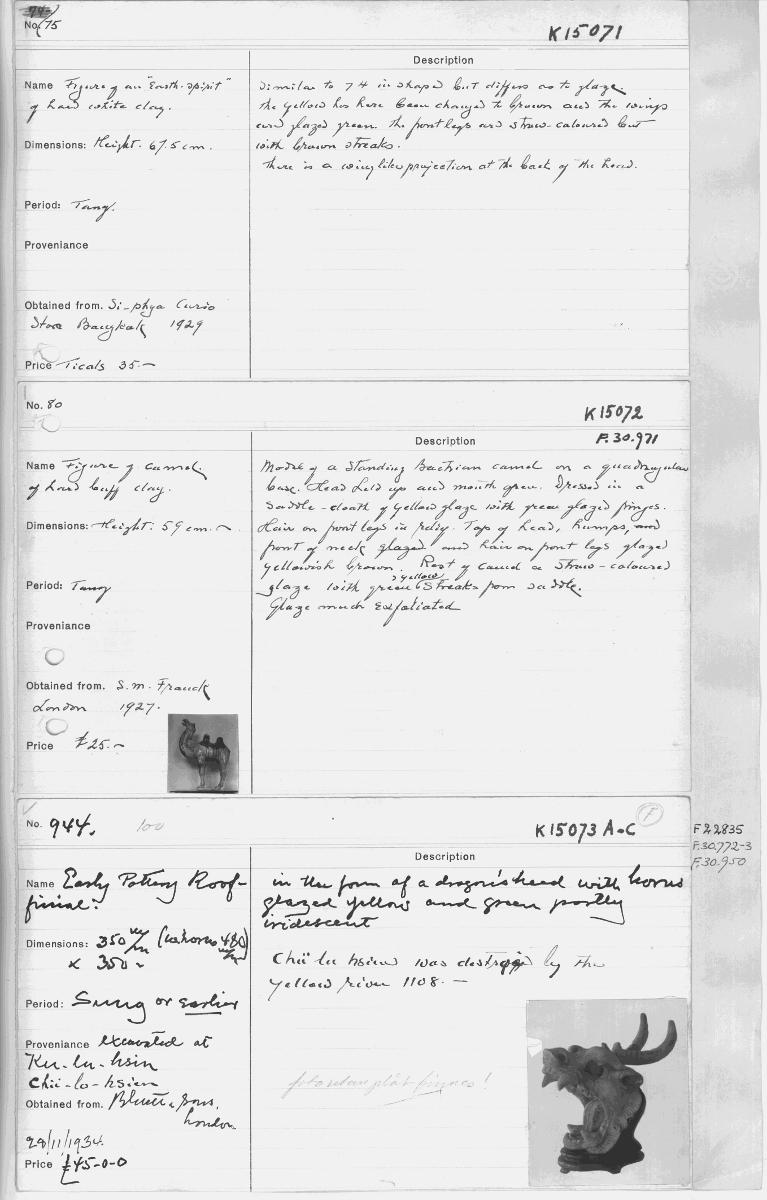 74
No. 75
K15071
Description
Name Figure of an "Earth-spirit"
of hard white clay.
Dimensions: Height. 67.5 cm.
Period: Tang.
Proveniance
Obtained from. Si-phya Curio
Store Bangkok 1929
Price Ticals 35.-
Similar to 74 in shape but differs as to glaze.
The yellow has here been changed to brown and the wings
are glazed green. The front legs are straw-coloured but
with brown streaks.
There is a wing like projection at the back of the head.
No. 80
K15072
F.30.971
Description
Name Figure of camel.
of hard buff clay.
Dimensions: Height: 59 cm.
Period: Tang
Proveniance
Obtained from. S.M. Franck
London 1927.
Price £25.-
Model of a Standing Bactrian camel on a quadrangular
base. Head held up and mouth open. Dressed in a
saddle-cloath of yellow glaze with green glazed fringes.
Hair on front legs in relief. Top of head, humps, and
front of neck glazed and hair on front legs glazed
yellowish brown. Rest of camel a straw-coloured
glaze with green & yellow streaks from saddle.
Glaze much exfoliated
No. 944. 100
K15073 A-C
F
F22835
F.30.772-3
F.30.950
Description
Name Early Pottery Roof-
finial.
Dimensions: 350 m/m (w. horns 480 m/m)
x 350 -
Period: Sung or earlier
Proveniance excavated at
Ku-lu-hsin
Chü-lo-hsien
Obtained from. Bluett & Sons,
London
28/11/1934.
Price £45-0-0
in the form of a dragon's head with horns
glazed yellow and green partly
iridescent
Chü lu hsien was destroyed by the
Yellow river 1108. -
foto utan plåt finnes!